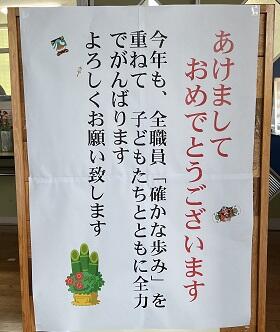 あけまして
おめでとうございます
今年も、全職員「確かな歩み」を
重ねて 子どもたちとともに全力
でがんばります
よろしくお願い致します